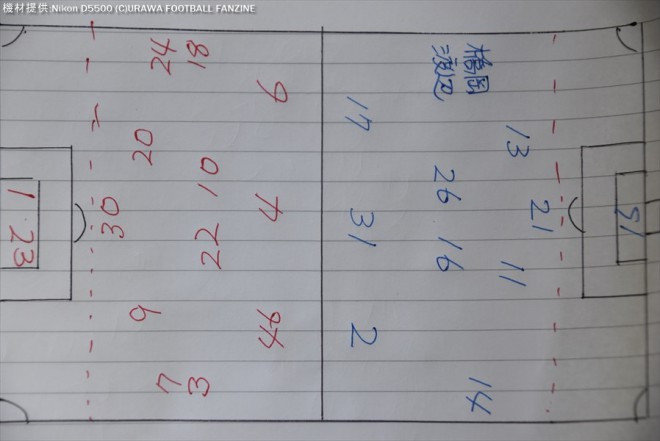 機材提供:Nikon D5500 (C)URAWA FOOTBALL FANZINE
24 18
9
20
10
30
22
4
1 23
9
44
7 3
橋岡
渡辺
17
13
26
21
31
16
11
2
14